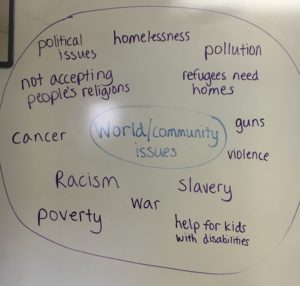 homelessness
political
issues
pollution
not accepting
people's religions
refugees need
homes
cancer
World/community
issues
guns
violence
Racism
slavery
war
poverty
help for kids
with disabilities